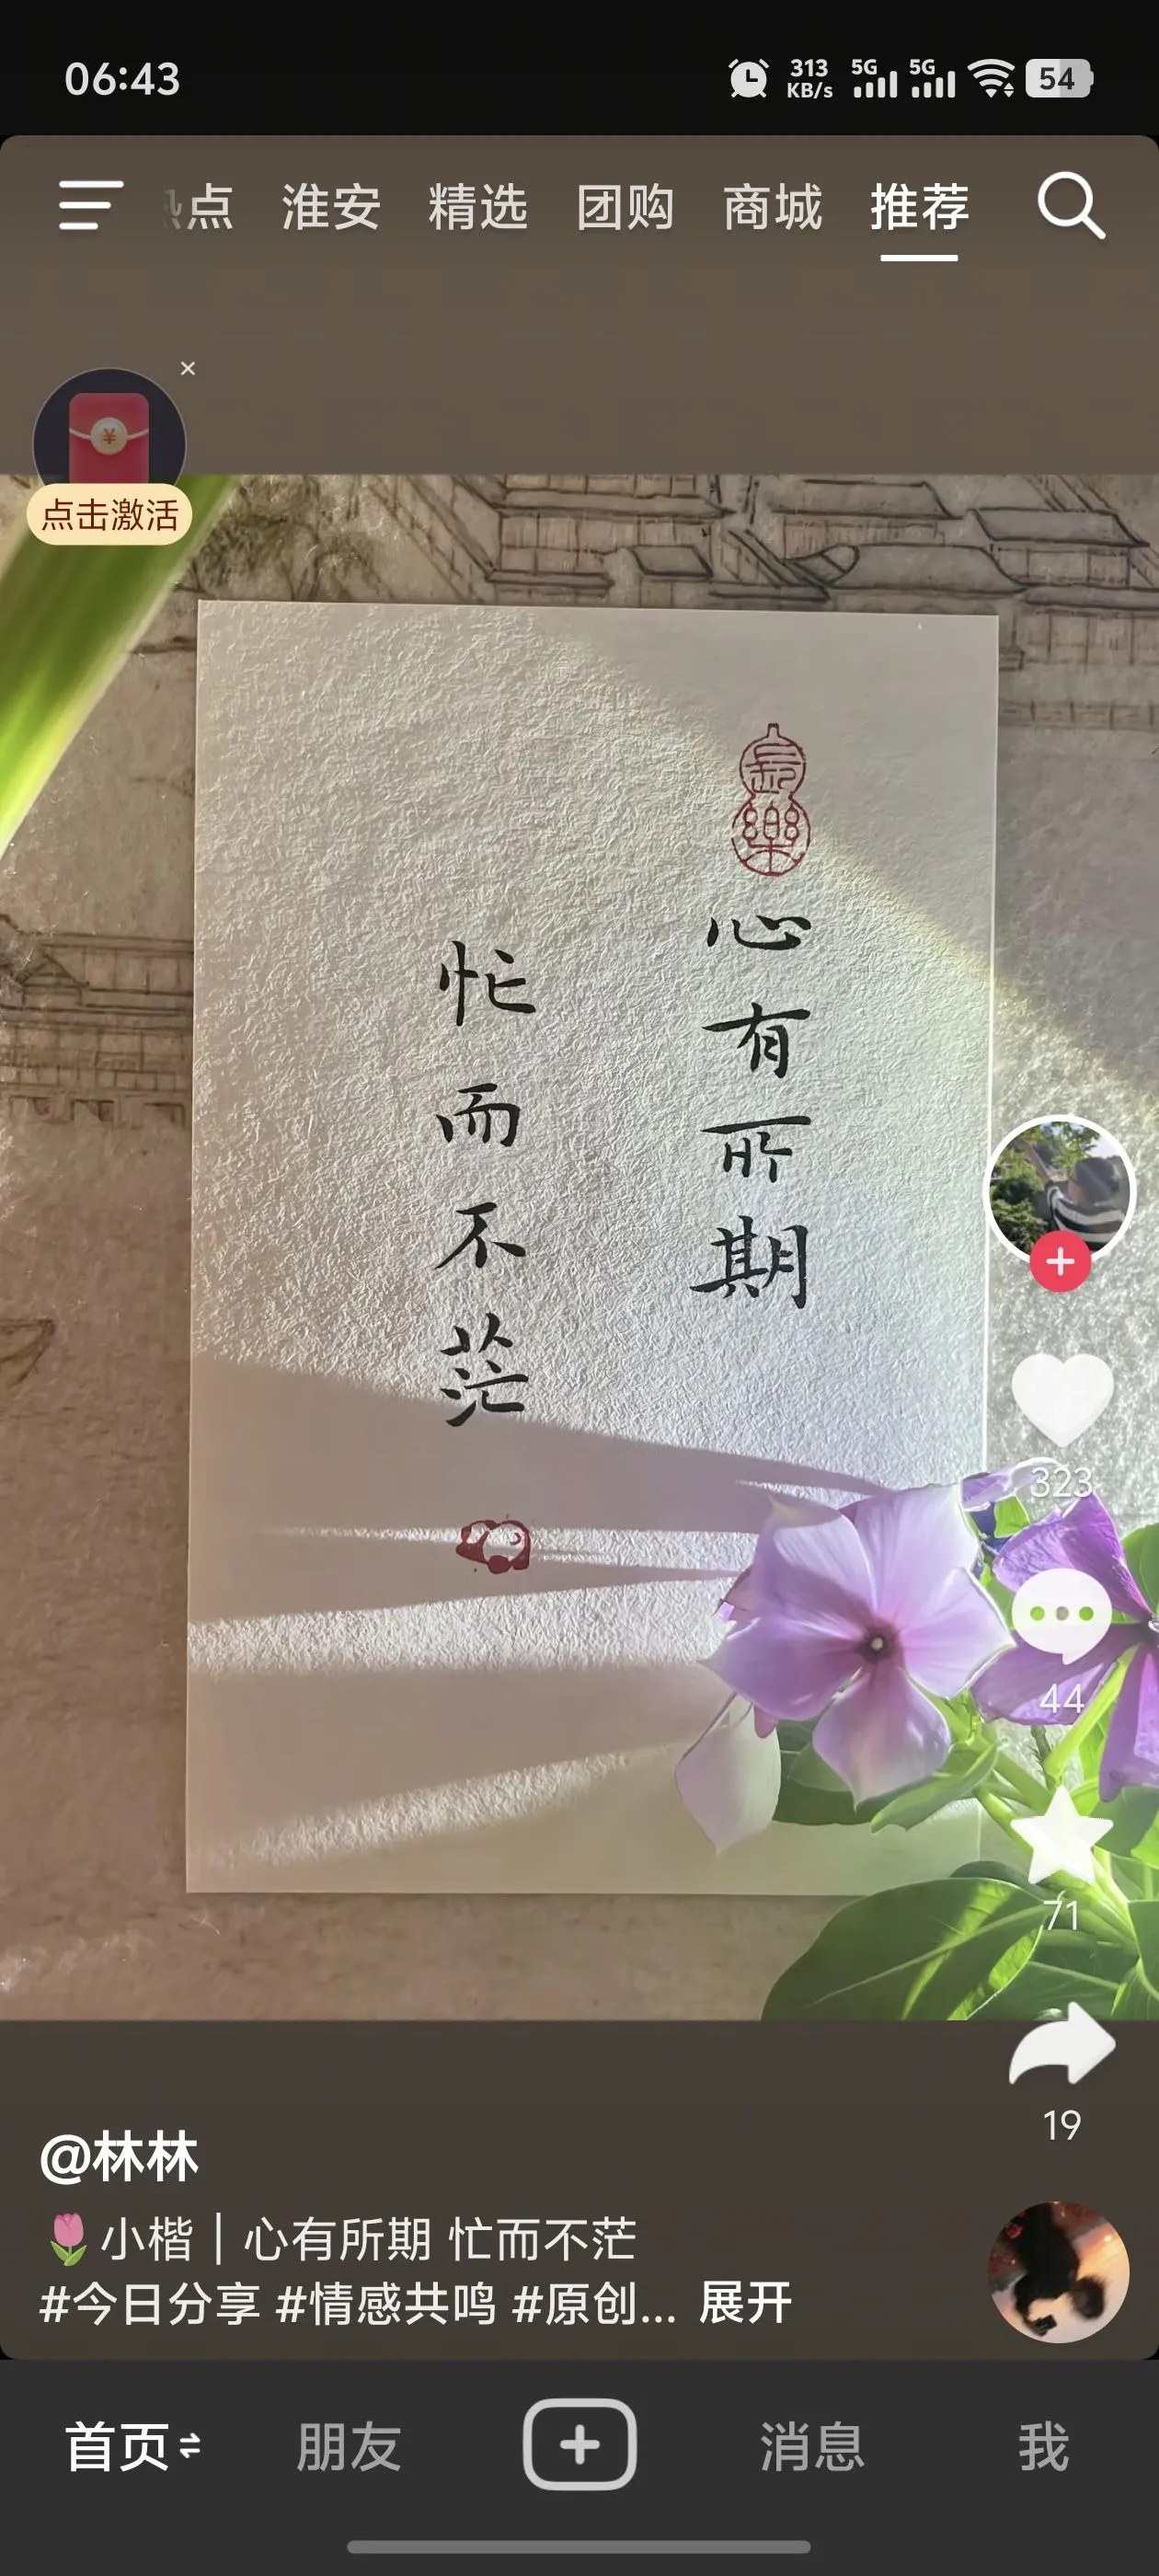 06:43
313 KB/s
5G 5G
54
热点 淮安 精选 团购 商城 推荐
点击激活
心有所期
忙而不茫
323
44
71
19
@林林
🌷小楷｜心有所期 忙而不茫
#今日分享 #情感共鸣 #原创... 展开
首页 朋友 消息 我